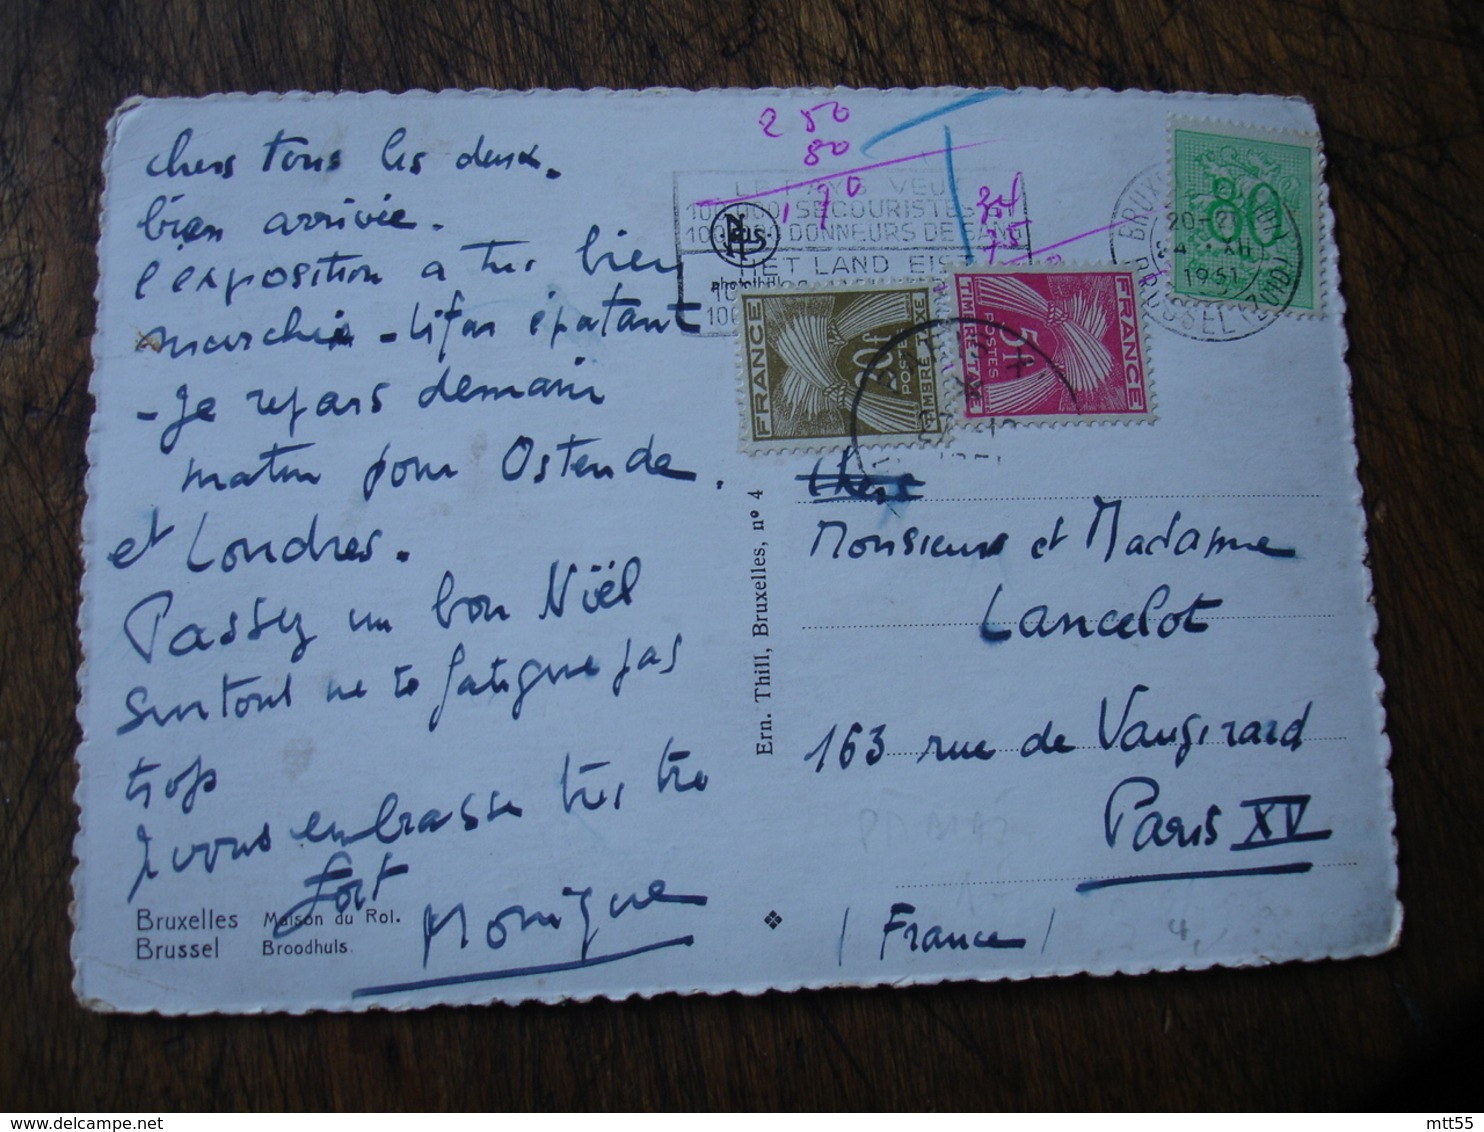 chers tous les deux.
bien arrivée.
l'exposition a très bien
marché - épatant
- Je repars demain
matin pour Ostende
et Londres.
Passez un bon Nöel
Surtout ne te fatigue pas
trop
Je vous embrasse très très
fort
Monique
Bruxelles Maison du Roi.
Brussel Broodhuis.
Ern. Thill, Bruxelles, nº 4
2 50
80
LE PAYS VEUT
100.000 SECOURISTES
100.000 DONNEURS DE SANG
HET LAND EIST
Nels
BRUXELLES
20-21
XII
1951
BRUSSEL
80
FRANCE
POSTES
TIMBRE TAXE
FRANCE
5f
POSTES
TIMBRE TAXE
Chers
Monsieur et Madame
Lancelot
163 rue de Vaugirard
Paris XV
(France)
4
mtt55